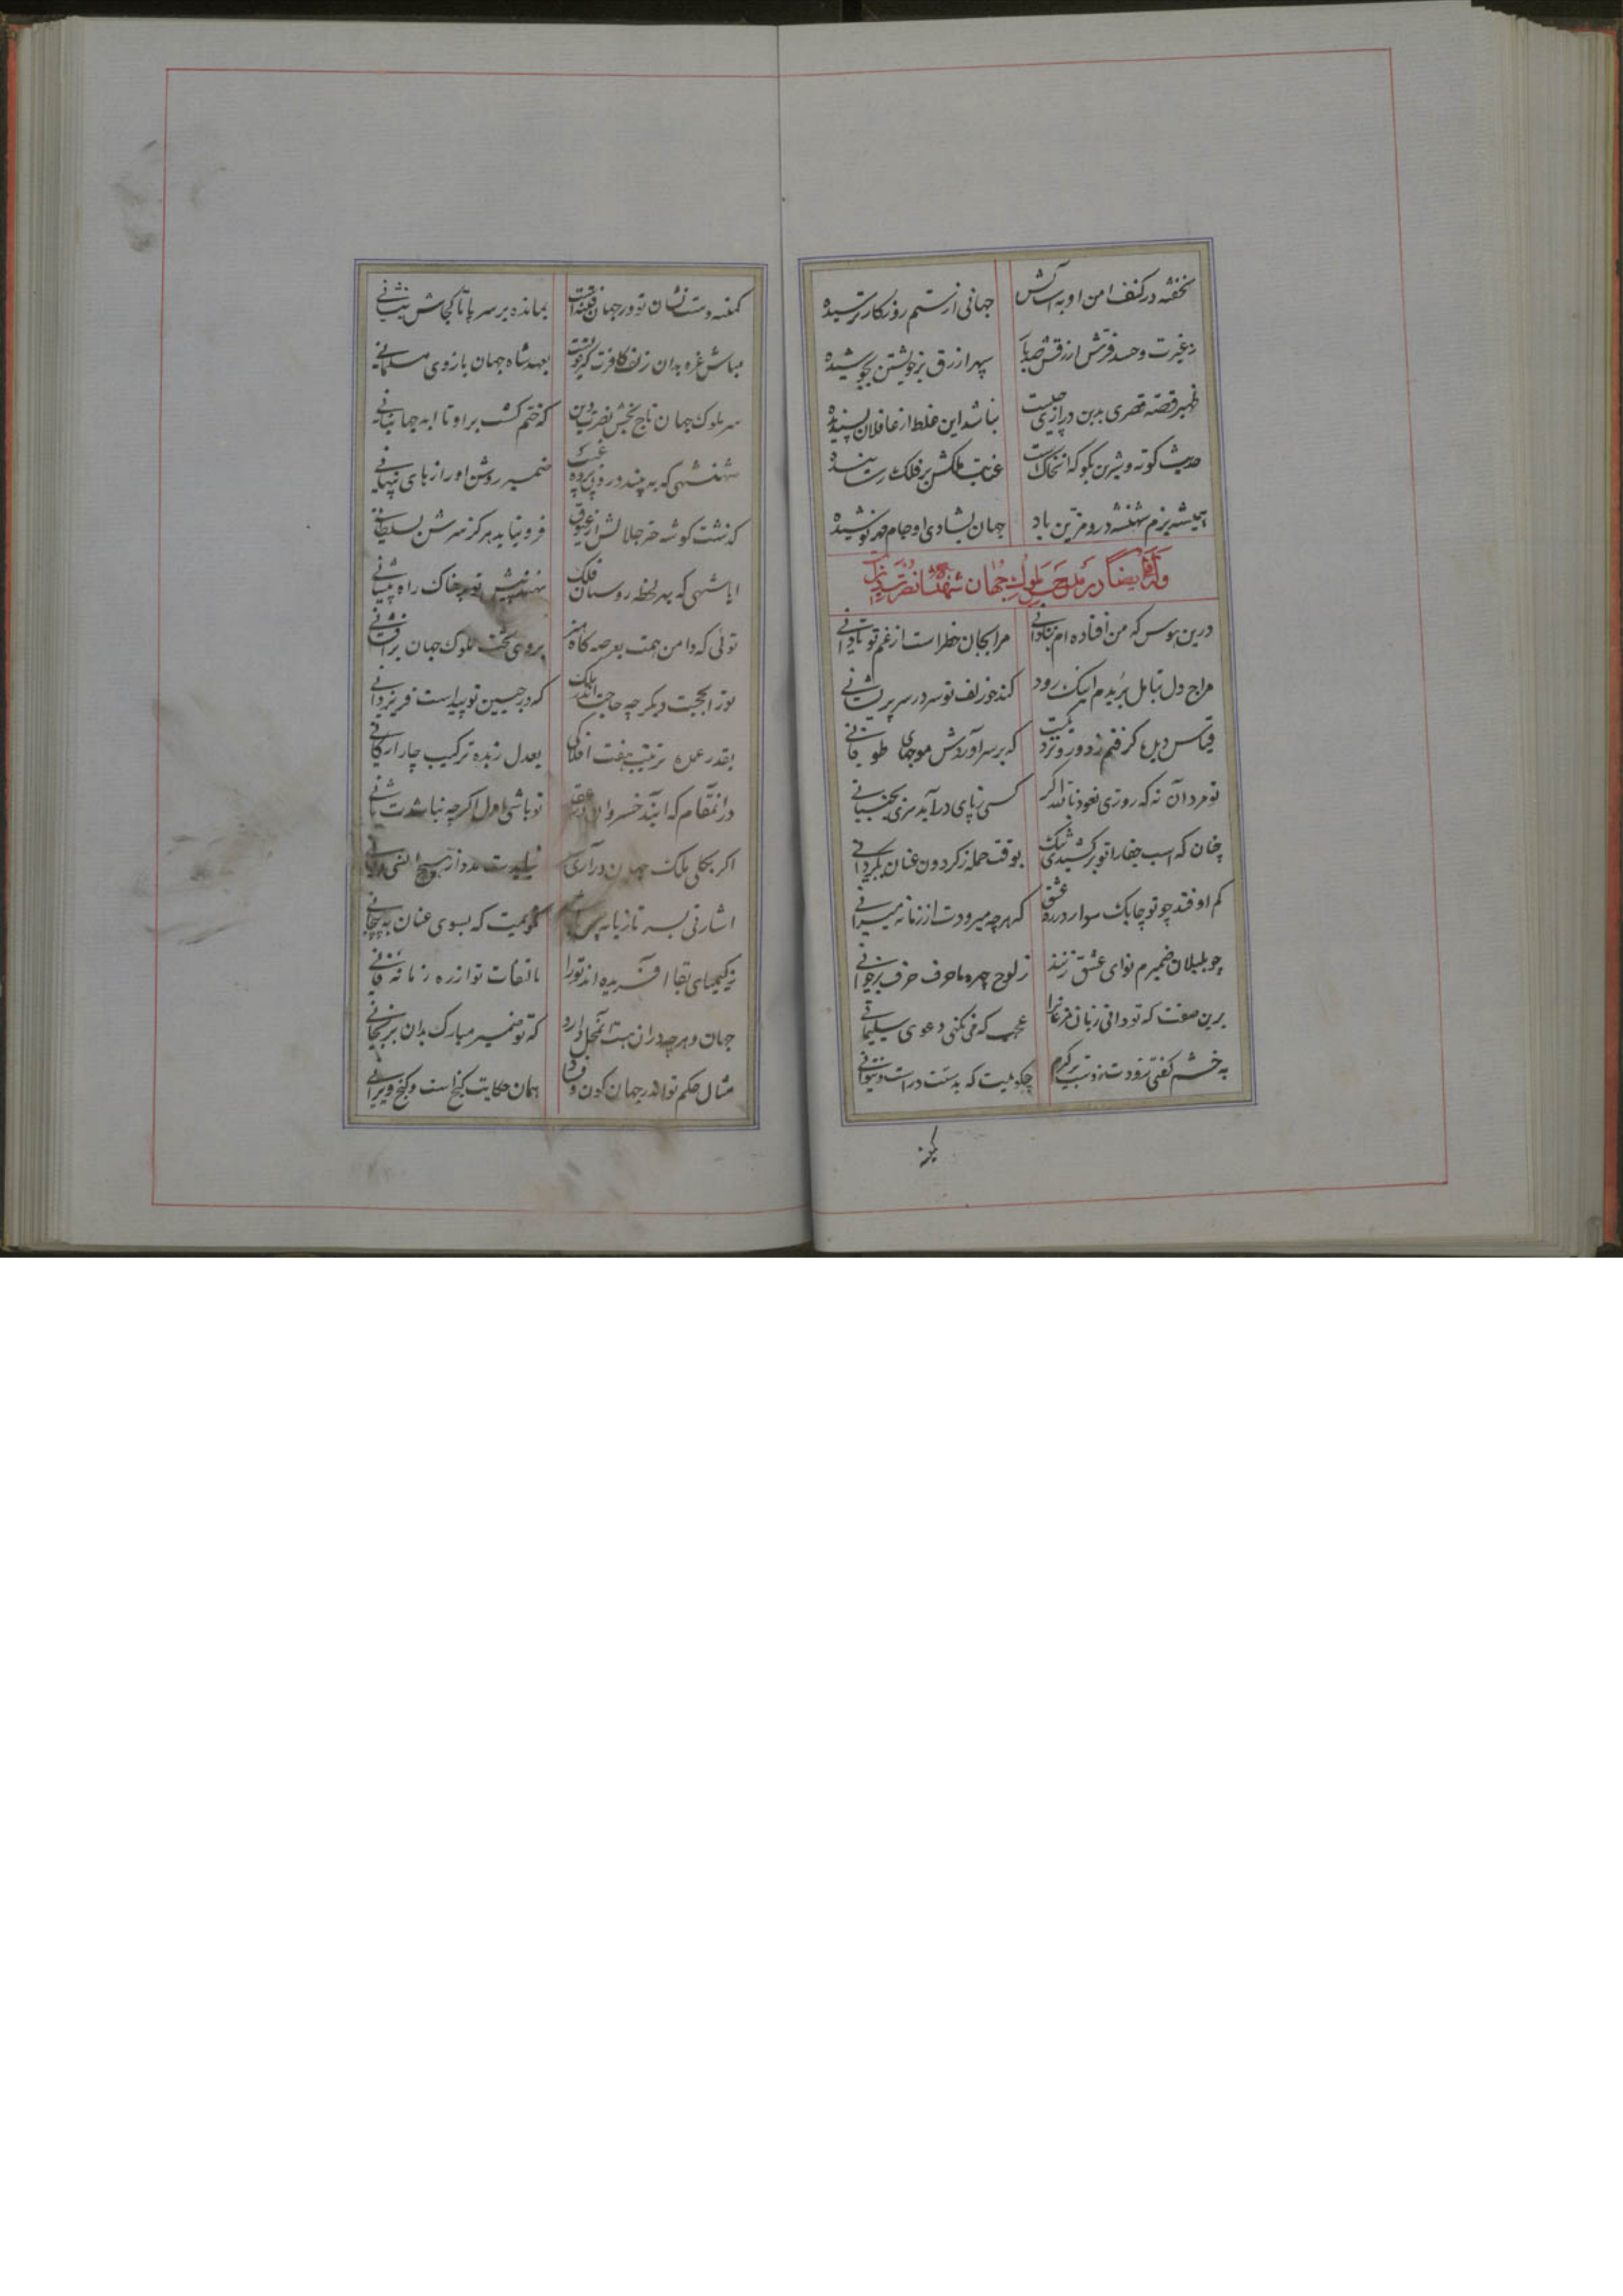 بخفته در کنف امن او به آسایش جهانی از ستم روزگار ترسیده
ز غیرت و حسد فرش ازرقش صد بار سپهر ازرق بر خویشتن بجوشیده
ظهیر قصه قصری بدین درازی چیست نباشد این غلط از عاقلان پسندیده
حدیث کوته و شیرین بگو که آنخاک است عنایت ملکش بر فلک رسانیده
همیشه بزم شهنشه درو مزین باد جهان بشادی او جام مهر نوشیده
وله ایضا در مدح ملوک جهان شهنشاه نصرت الدین
درین هوس که من افتاده ام بنادانی مرا بجان خطر است از غم تو تا دانی
مراد دل بتامل بریدم اینک رود کند چو زلف تو سر در سر پریشانی
قیاس دیده گرفتم ز دور و نزدیکست که بر سر آوردش موجهای طوفانی
تو مرد آن نه که روزی نعوذ بالله اگر کسی ز پای درآید سری بجنبانی
چنان که اسب جفا را تو برکشیدی تنگ بوقت حمله ز گردون عنان بگردانی
کم اوفتد چو تو چابک سوار در ره عشق که هرچه میرودت از زمانه میرانی
چو بلبلان ضمیرم نوای عشق زنند ز لوح چهره ما حرف حرف برخوانی
برین صفت که تو دانی زبان مرغانرا عجب که می نکنی دعوی سلیمانی
به خشم گفتی زودت بزود ترک کرم چگونیست که بدست در است و نتوانی
کمینه
کمینه دست نشان تو در جهان فتنه است بمانده بر سر پا تا کجاش بنشانی
مباش غره بدان زلف کافرت که گرفت بعهد شاه جهان بازوی مسلمانی
سر ملوک جهان تاج بخش نصرت دین که ختم گشت بر او تا ابد جهانبانی
شهنشهی که به بیند درون پرده غیب ضمیر روشن او رازهای پنهانی
گذشت گوشه چتر جلالش از عیوق فرو نیاید هرگز سرش بسلطانی
ایا شهی که بهر لحظه روسنان فلک نهند پیش تو بر خاک راه پیشانی
توئی که دامن همت بعرصه گاه هنر بروی تخت ملوک جهان برافشانی
تو را بحجت دیگر چه حاجت اندر ملک که در جبین تو پیداست فر یزدانی
بقدر عمده ترتیب هفت افلاکی بعدل زبده ترکیب چار ارکانی
در آنمقام که آیند خسروان در عقد تو باشی اول اگرچه نباشدت ثانی
اگر بکلی ملک جهان درآری نیایدت مدد از هیچ انسی و جانی
اشارتی بسر تازیانه بس باشد کمیت که بسوی عنان به پیچانی
ز کیمیای بقا آفریده اند تو را ما التفات تو از ره زمانه فانی
جهان و هرچه در آن هست آنمحل دارد که تو ضمیر مبارک بدان برنجانی
مثال حکم تو اندر جهان کون و فساد همان حکایت گنج است و کنج ویرانی